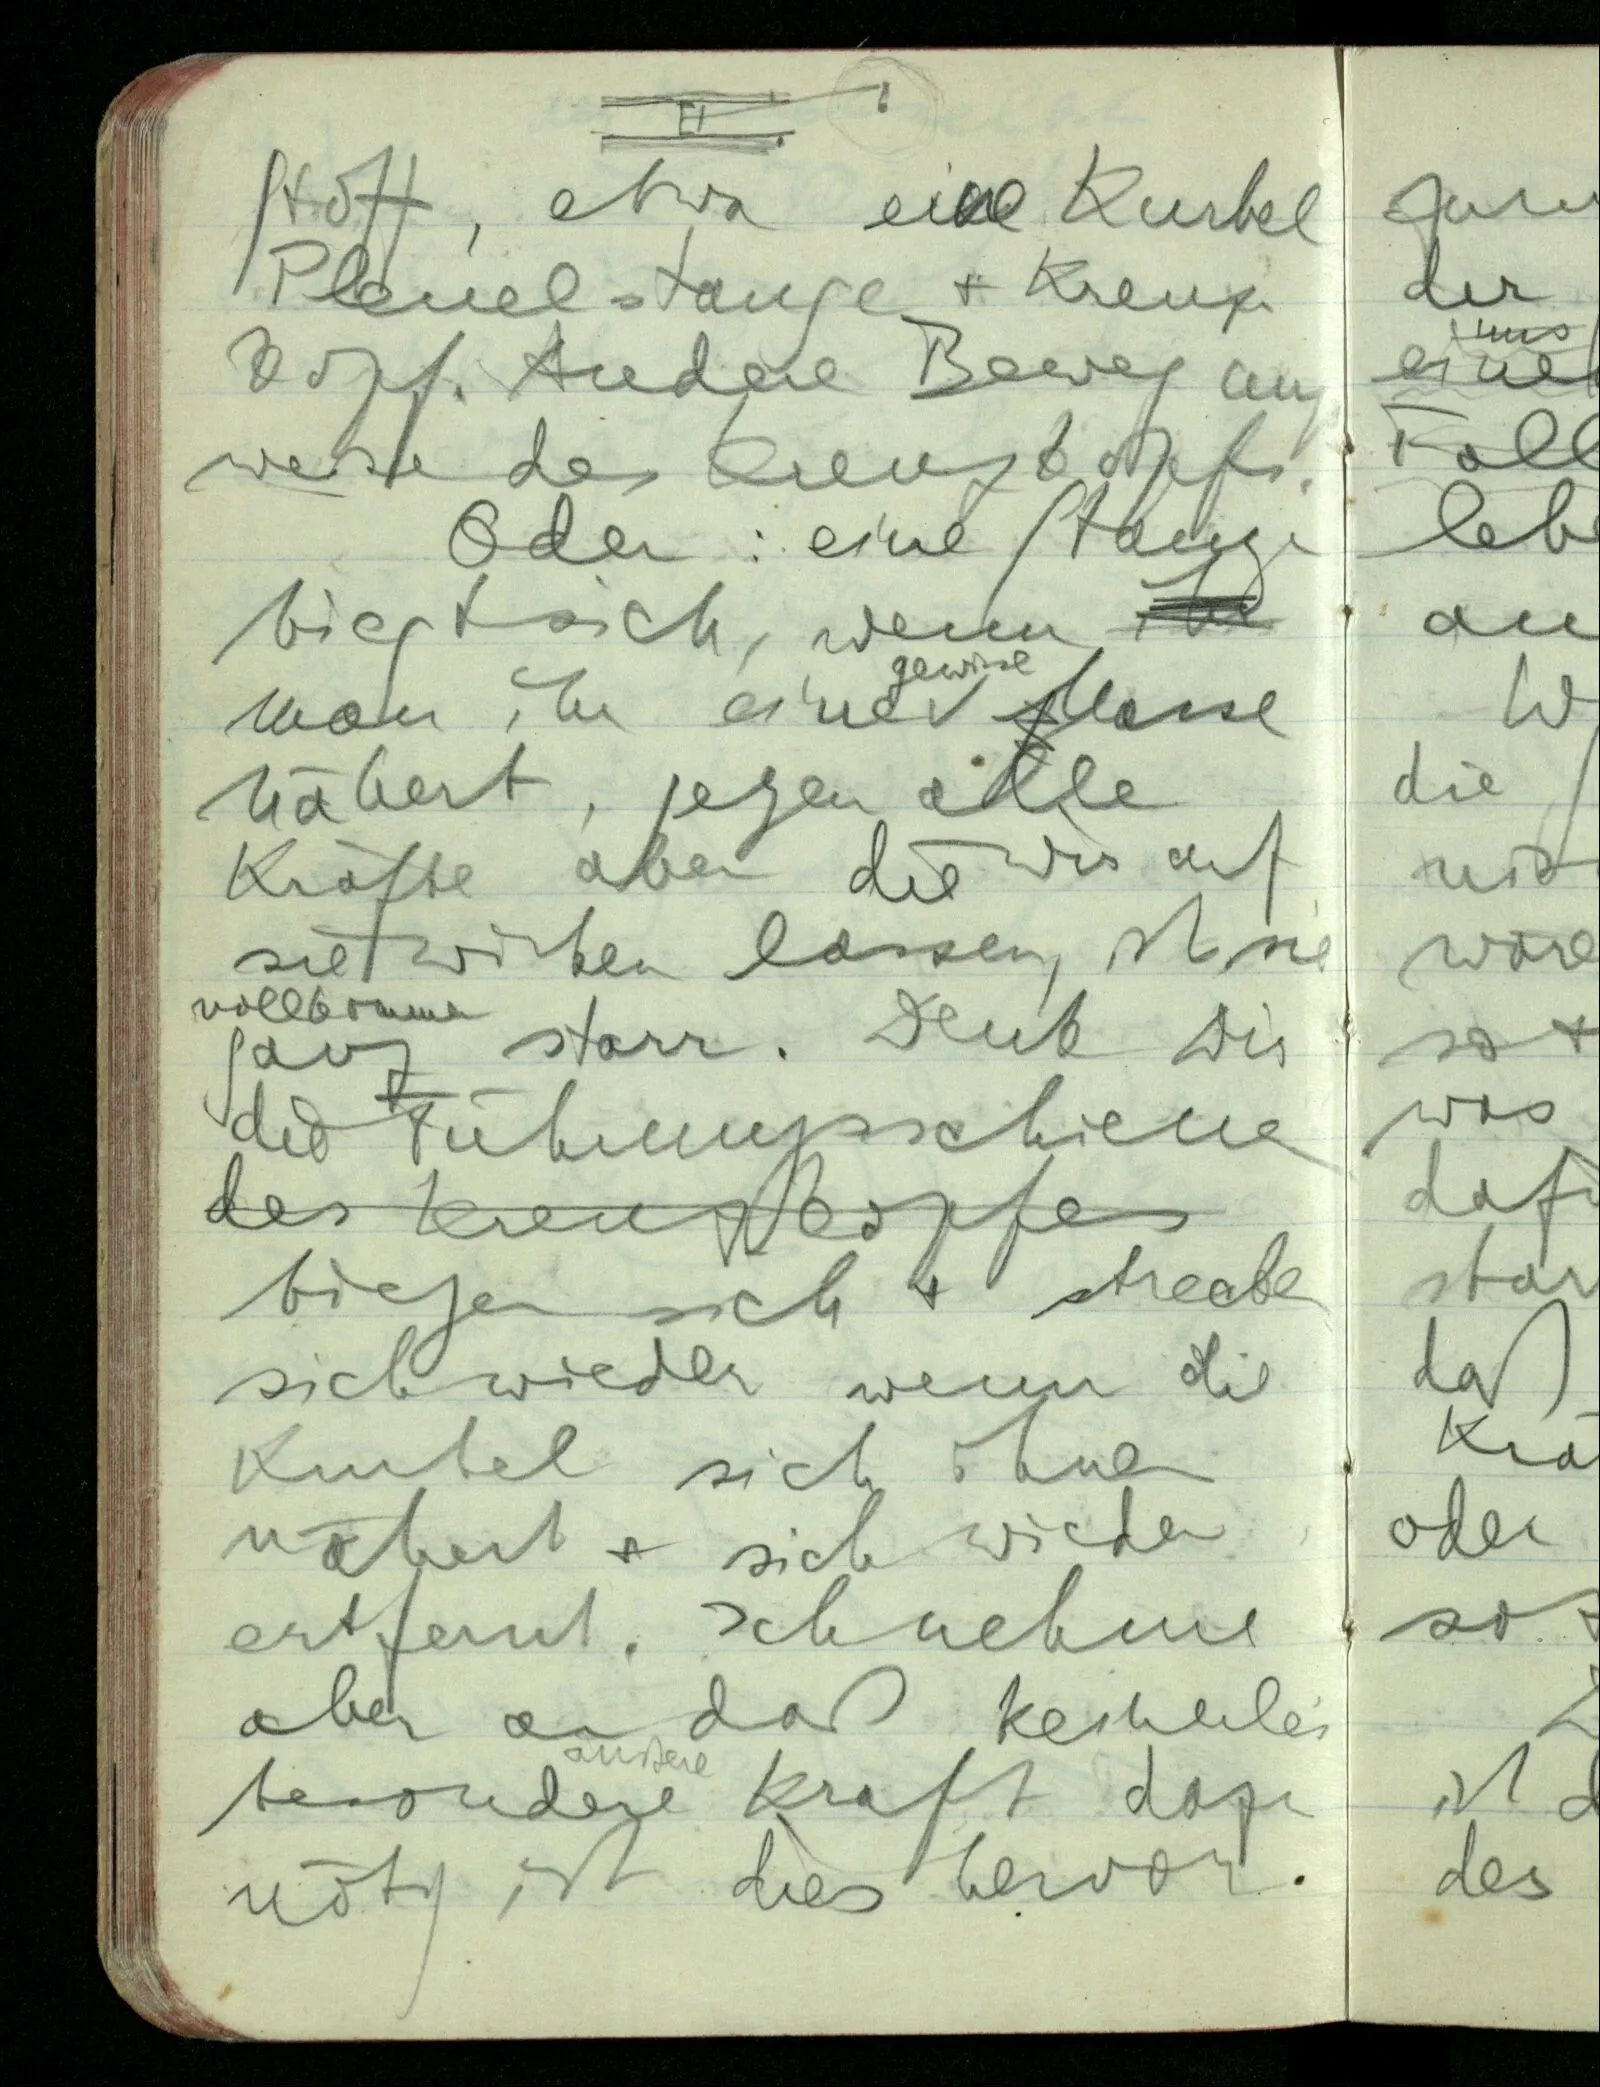 II
stößt, etwa eine Kurbel
Pleuelstange + Kreuz
kopf. Andere Beweg ung
weise des Kreuzkopfs.
Oder: eine Stange
biegt sich, wenn
gewisse
man ihr eine Masse
nähert, gegen alle
Kräfte aber die wir auf
sie wirken lassen, ist sie
vollkommen
ganz starr. Denk Dir
die Führungsschiene
des Kreuzkopfes
biegen sich + strecken
sich wieder wenn die
Kurbel sich ihnen
nähert + sich wieder
entfernt. Ich nehme
aber an daß keinerlei
äußere
besondere Kraft dazu
nötig ist dies hervor.
der
uns
eine
Fall
lebe
an
W
die
nich
wäre
so +
was
dafü
star
daß
Krä
oder
so
ist d
des